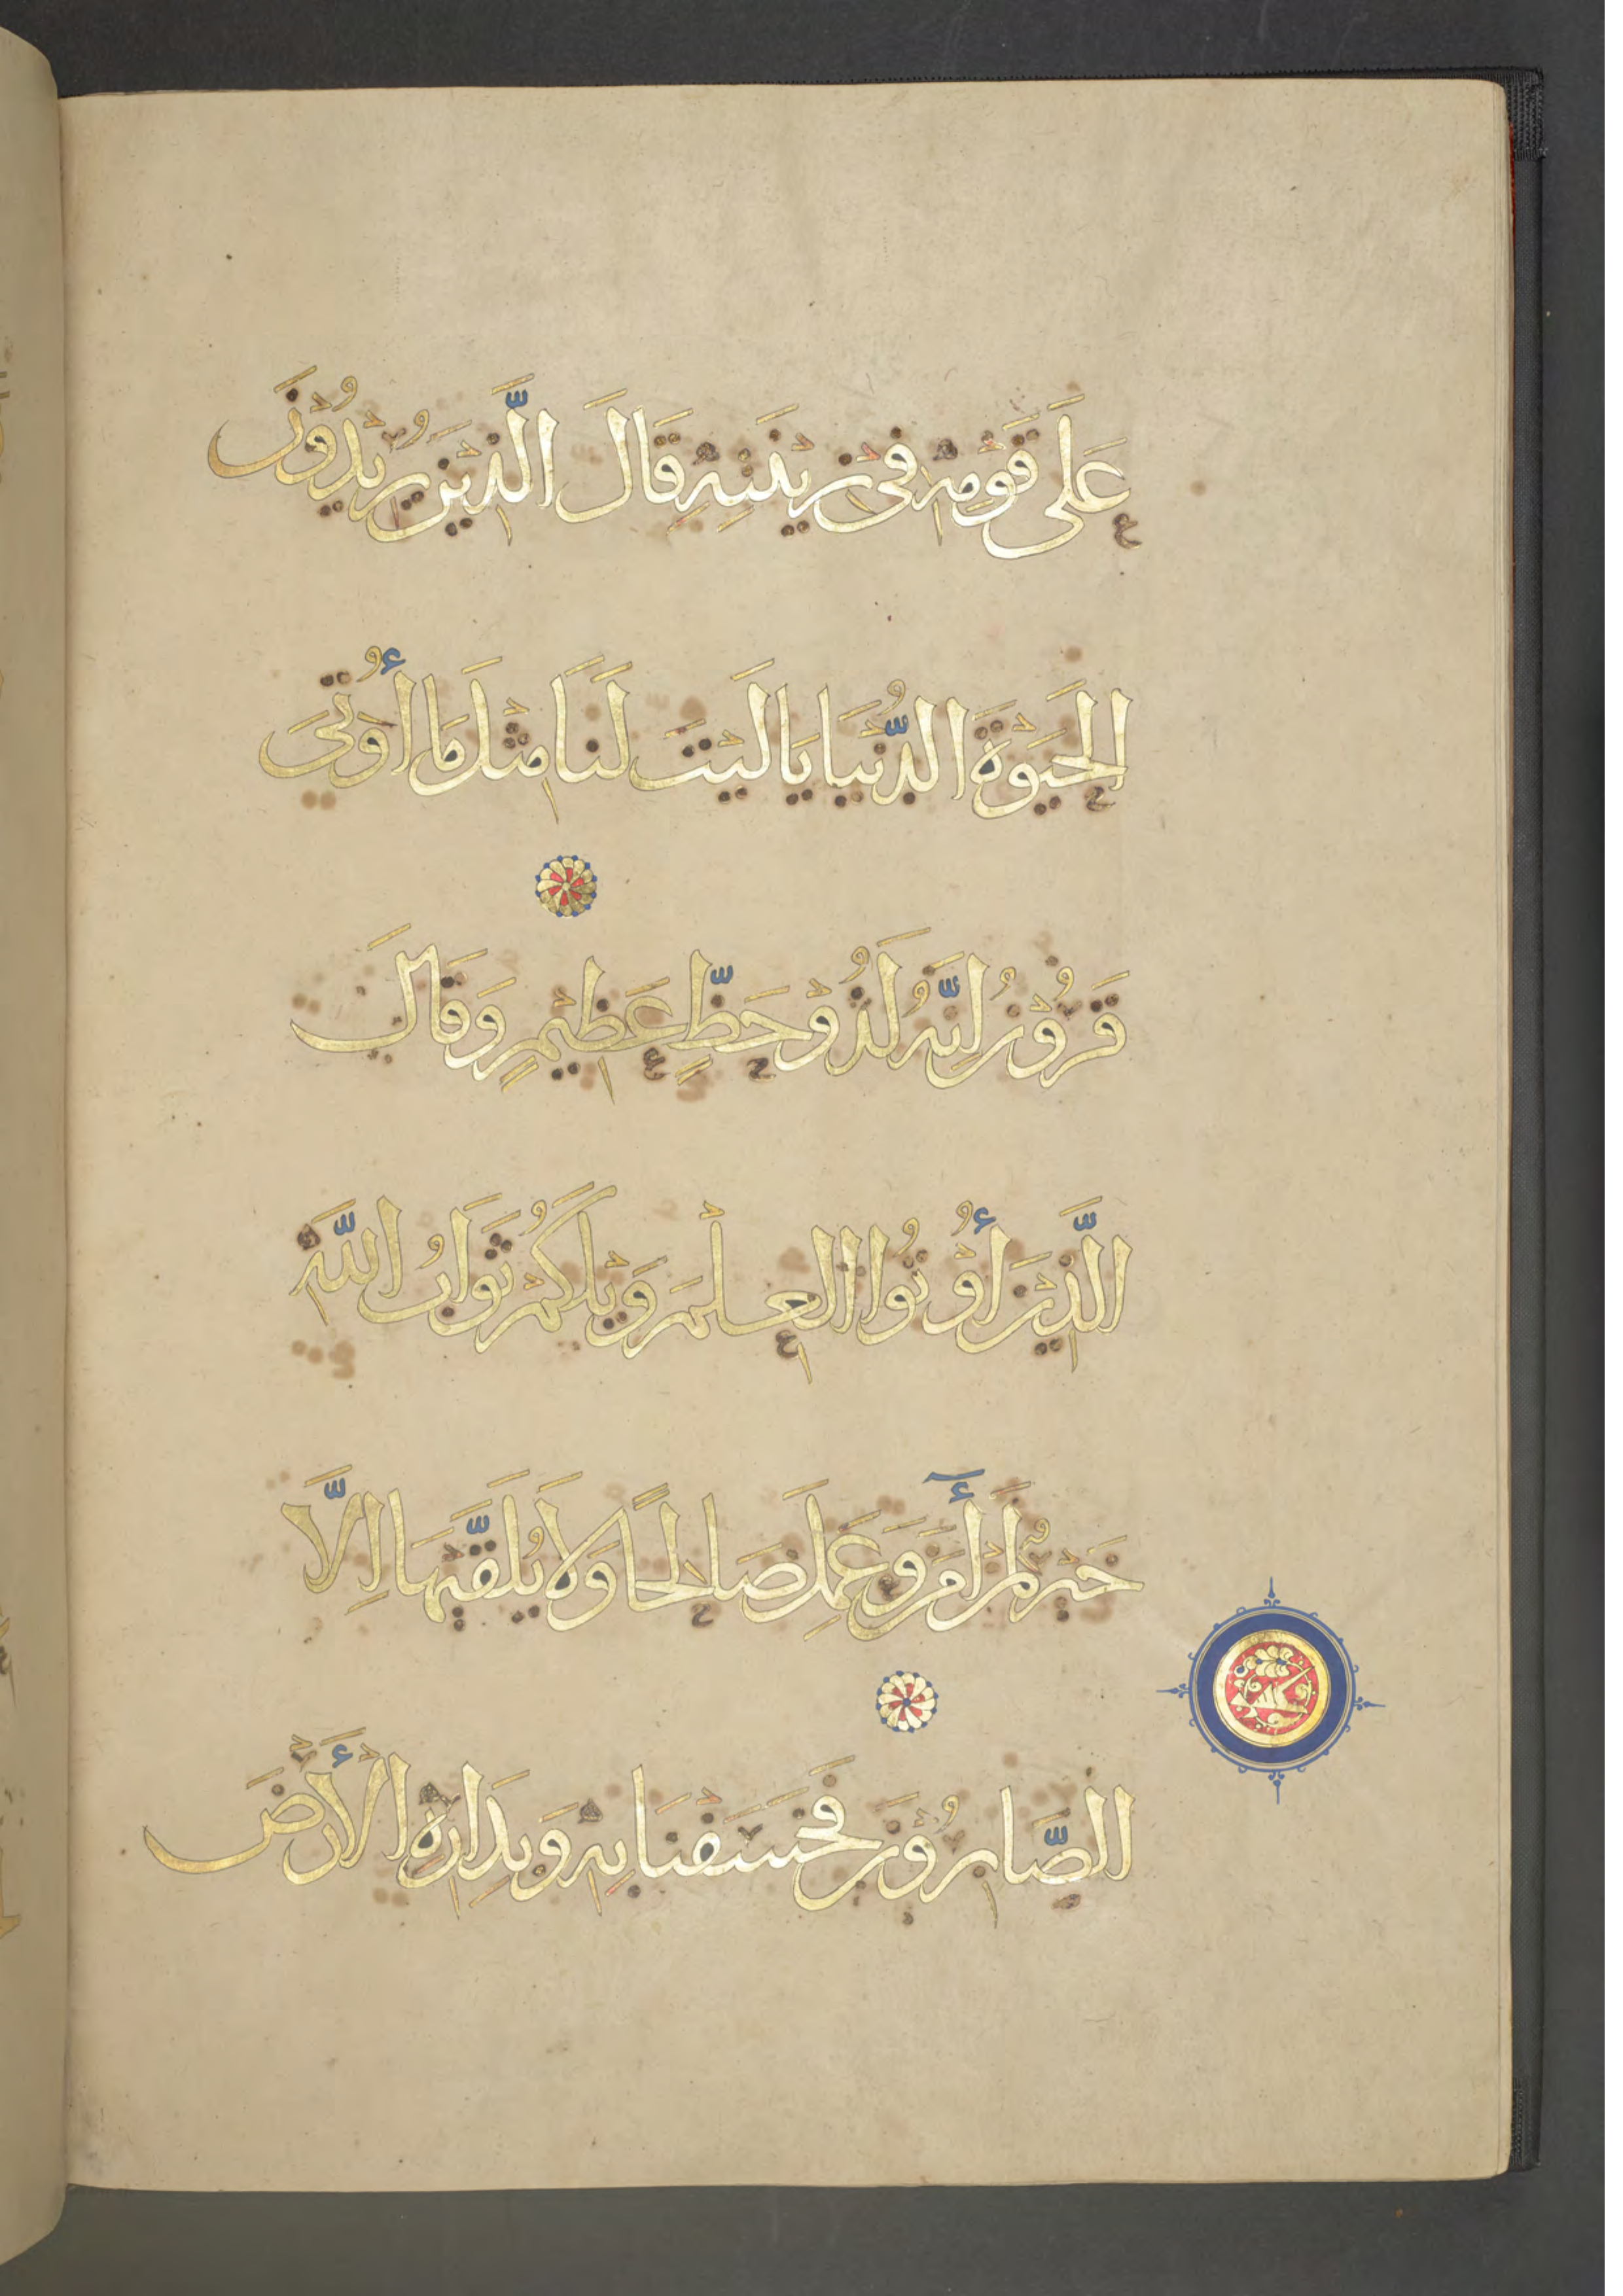 عَلَى قَوْمِهِ فِي زِيْنَتِهِ قَالَ الَّذِيْنَ يُرِيْدُوْنَ
الْحَيَوةَ الدُّنْيَا يَا لَيْتَ لَنَا مِثْلَ مَا أُوْتِيَ
قَرُوْنُ اِنَّهُ لَذُوْ حَظٍّ عَظِيْمٍ وَقَالَ
الَّذِيْنَ أُوْتُوا الْعِلْمَ وَيْلَكُمْ ثَوَابُ اللَّهِ
خَيْرٌ لِمَنْ أٓمَنَ وَعَمِلَ صَالِحًا وَلَا يُلَقَّيْهَا اِلَّا
الصَّابِرُوْنَ فَخَسَفْنَا بِهِ وَبِدَارِهِ الْأَرْضَ